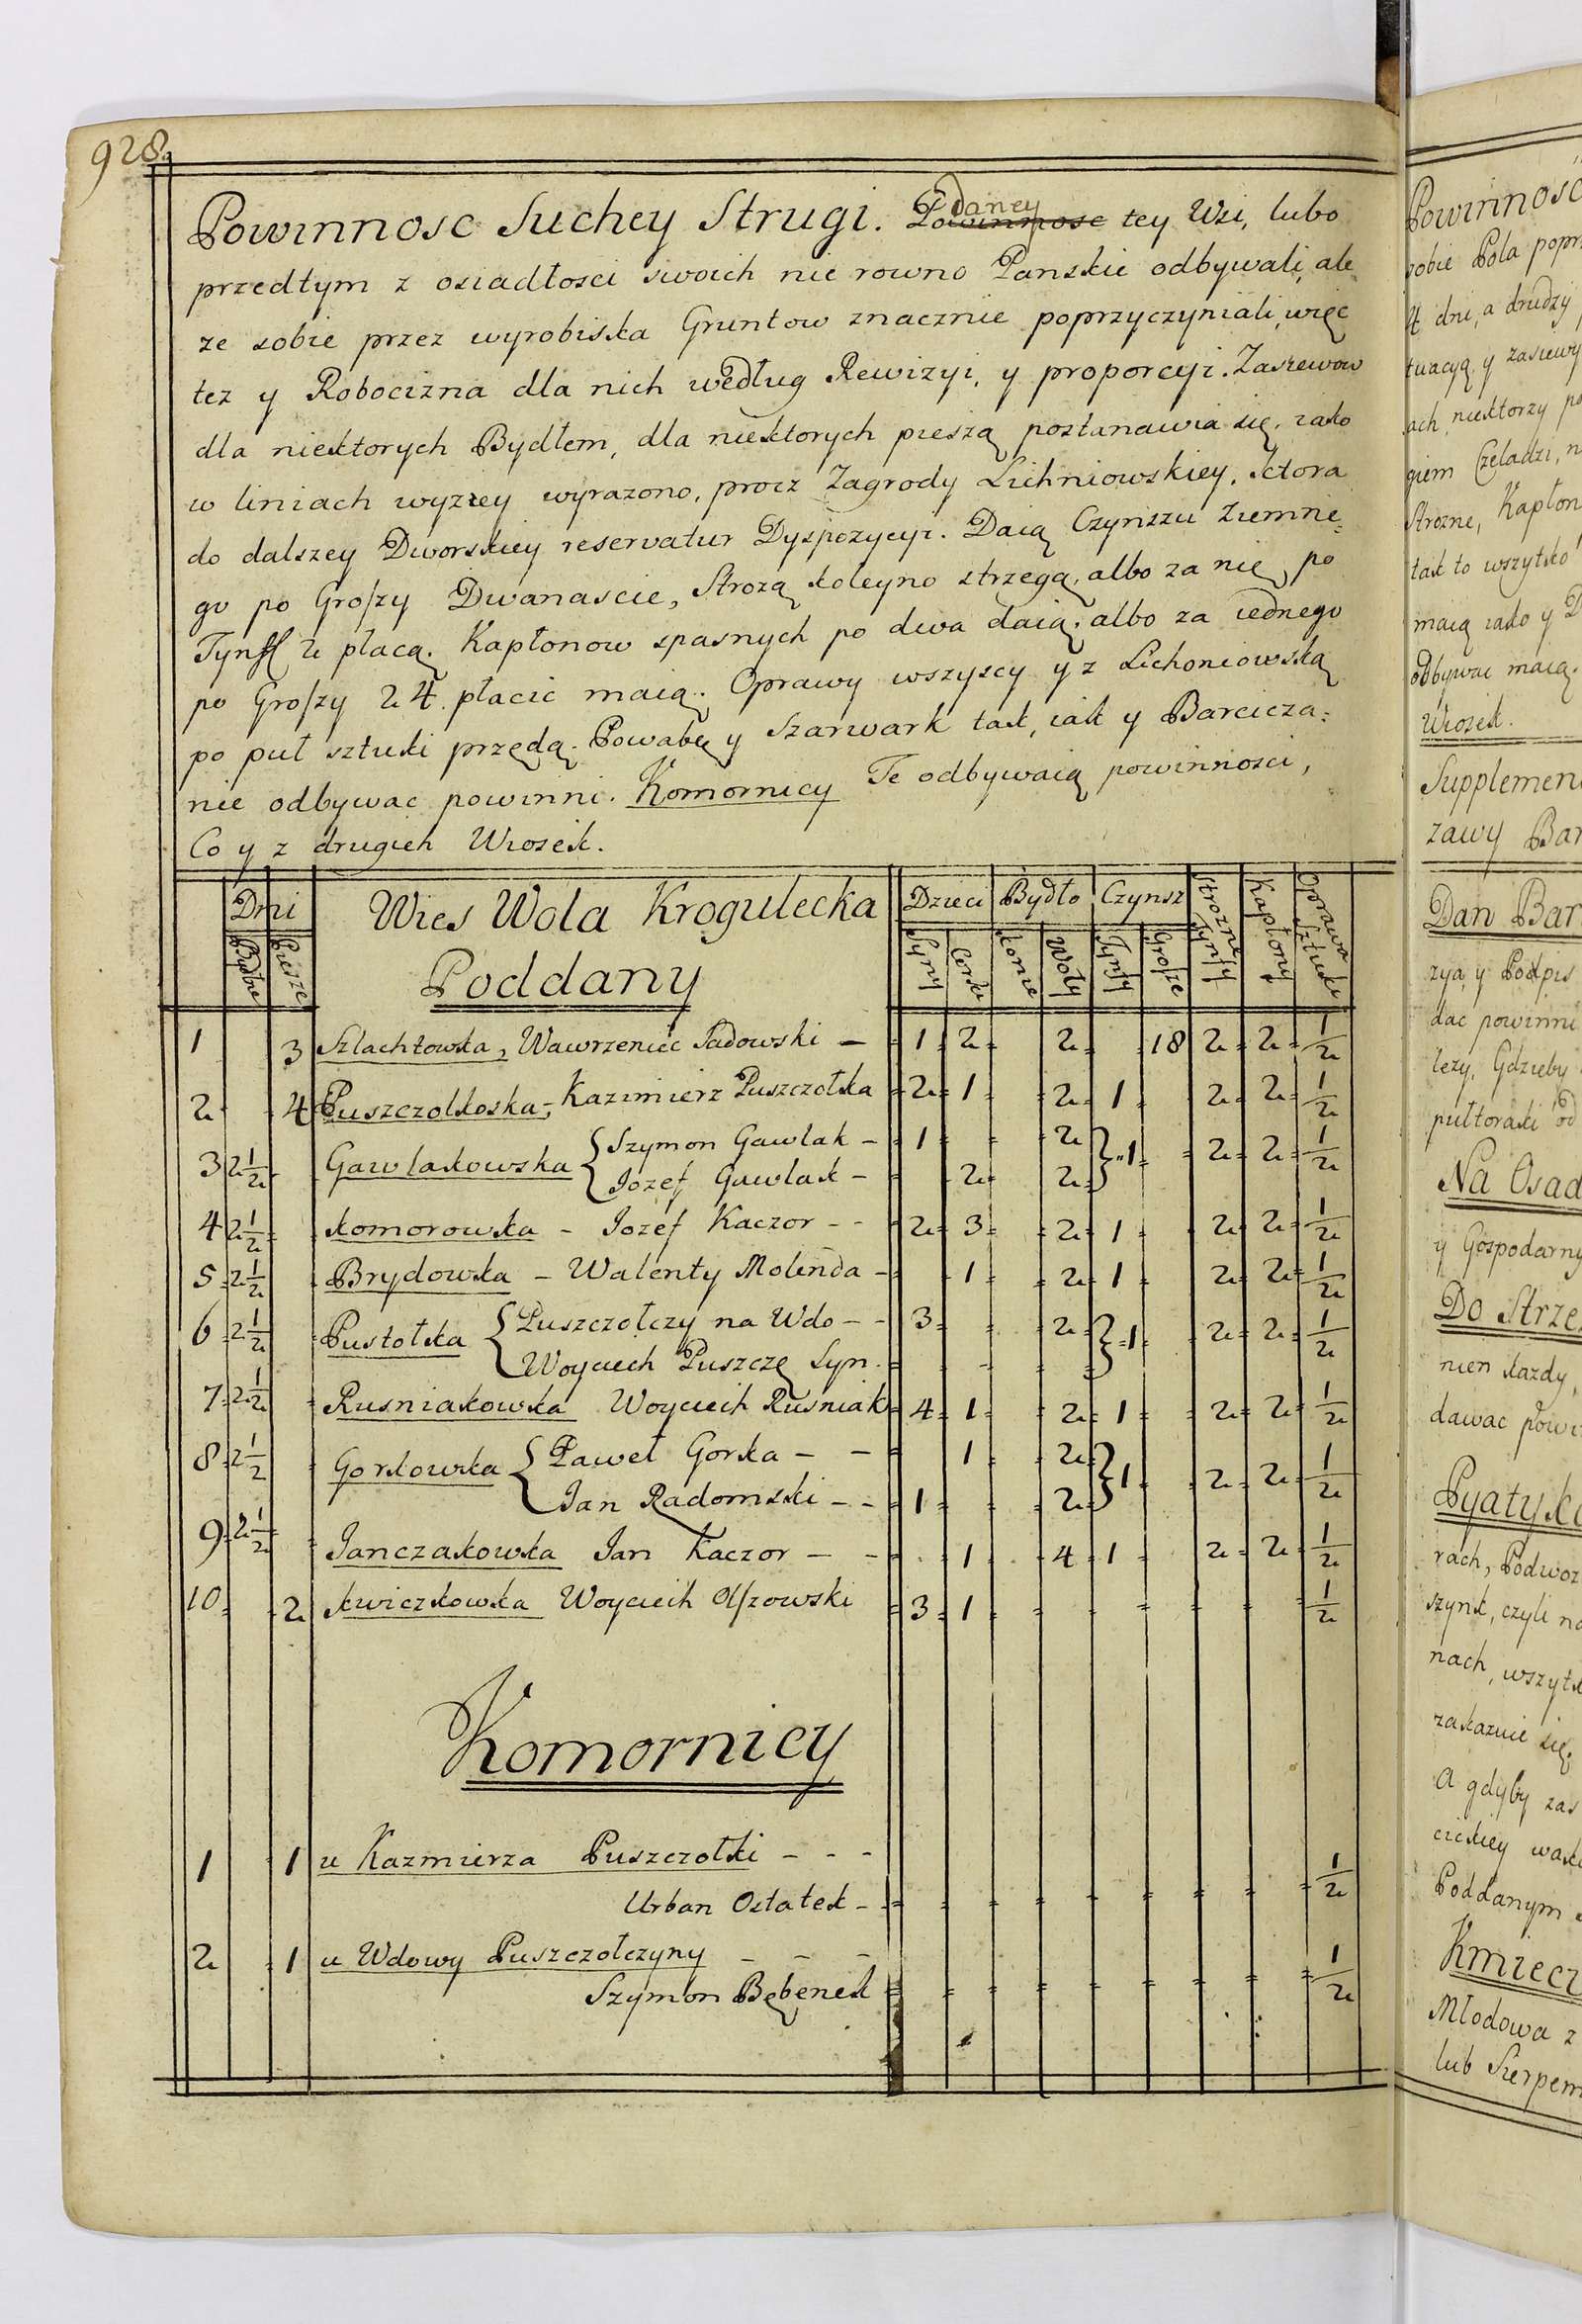 928.
Powinnosc Suchey Strugi. Poddaney tey Wsi, lubo
przedtym z osiadłosci swoich nie rowno Panskie odbywali, ale
ze sobie przez wyrobiska Gruntow znacznie poprzyczyniali, więc
tez y Robocizna dla nich według Rewizyi, y proporcyi. Zasiewow
dla niektorych Bydłem, dla niektorych pieszą postanawia się. iako
w liniach wyzey wyrazono, procz Zagrody Lichniowskiey, ktora
do dalszey Dworskiey reservatur Dyspozycyi. Daią Czynszu Ziemne=
go po Groszy Dwanascie, Strozą koleyno strzegą, albo za nię po
Tynff 2 płacą. Kapłonow spasnych po dwa daią, albo za iednego
po Groszy 24. płacic maią. Oprawy wszyscy y z Lichoniowską
po puł sztuki przędą. Powabę y Szarwark tak, iak y Barcicza=
nie odbywac powinni. Komornicy Te odbywaią powinnosci,
Co y z drugich Wiosek.
Dni Wies Wola Krogulecka Dzieci Bydło Czynsz Strozne Tynfy Kapłony Oprawa Sztuki
Bydłne Piesze Poddany Syny Corki Konie Woły Tynfy Grosze
1 3 Szlachtowska, Wawrzeniec Sadowski - 1 2 2 18 2 2 1/2
2 4 Puszczolkoska, Kazimierz Puszczołka 2 1 2 1 2 2 1/2
3 2 1/2 Gawlakowska { Szymon Gawlak - 1 2 } 1 2 2 1/2
Jozef Gawlak - 2 2
4 2 1/2 Komorowska - Jozef Kaczor - - 2 3 2 1 2 2 1/2
5 2 1/2 Brydowska - Walenty Molenda - 1 2 1 2 2 1/2
6 2 1/2 Pustołka { Puszczołczy na Wdo - - 3 2 } 1 2 2 1/2
Woyciech Puszczę Syn.
7 2 1/2 Rusniakowska Woyciech Rusniak 4 1 2 1 2 2 1/2
8 2 1/2 Gorkowska { Paweł Gorka - - 1 2 } 1 2 2 1/2
Jan Radomski - - 1 2
9 2 1/2 Janczakowska Jan Kaczor - - 1 4 1 2 2 1/2
10 2 Kwiczkowska Woyciech Olszowski 3 1 1/2
Komornicy
1 1 u Kazmierza Puszczołki - - - 1/2
Urban Ostatek -
2 1 u Wdowy Puszczołczyny - - - 1/2
Szymon Bębenek
Powinnosc
sobie Pola
4 dni, a drudzy
y zasiewy
niektorzy
Czeladzi,
Strozne, Kapłon
tak to wszytko
maią iako y
odbywac maią.
Wiosek.
Supplemen
zawy Bar
Dan Bar
zya, y Podpis
dac powinni
lezy, Gdzieby
pułtoraki od
Na Osad
y Gospodarny
Do Strze
nien kazdy,
dawac powi
Pyatyk
rach, Podwoz
szynk, czyli na
nach, wszytk
zakazuie się,
A gdyby zas
Poddanym
Kmiec
Młodowa z
lub Sierpem